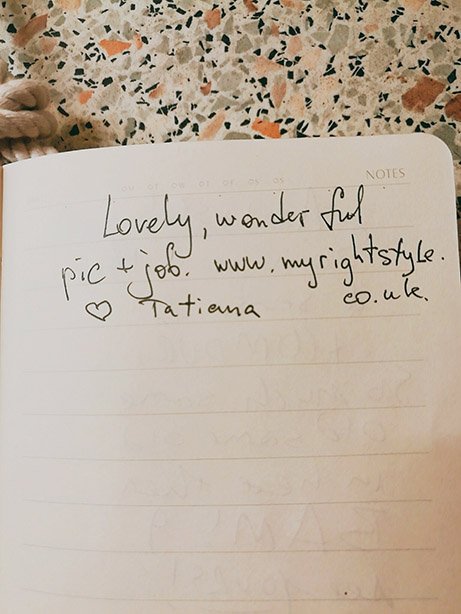 NOTES
Lovely, wonderful
pic + job. www.myrightstyle.
♡ Tatiana co.uk.